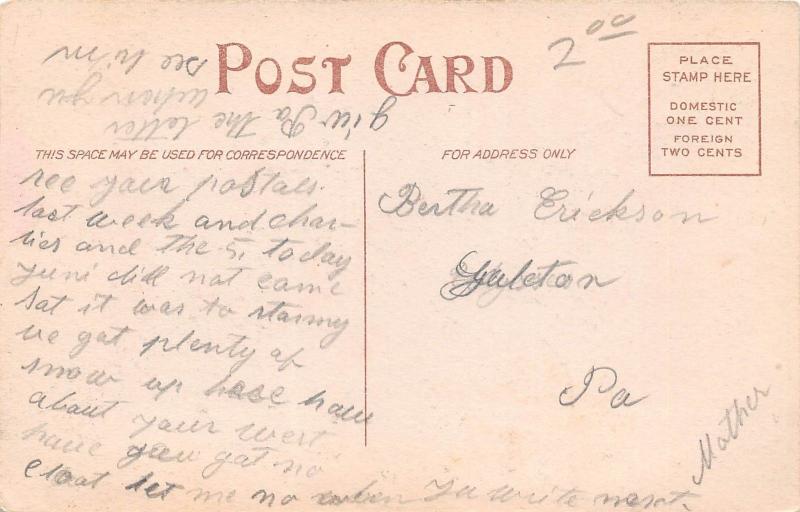 give Pa the letter
when you
see him
POST CARD
2 00
PLACE
STAMP HERE
DOMESTIC
ONE CENT
FOREIGN
TWO CENTS
THIS SPACE MAY BE USED FOR CORRESPONDENCE
FOR ADDRESS ONLY
rec your postals
last week and char-
lies and the 5, today
did not came
Sat it was to stormy
we got plenty of
snow up here how
about your west
have you got no
cloat let me no when yu write next.
Mother
Bertha Erickson
Galeton
Pa